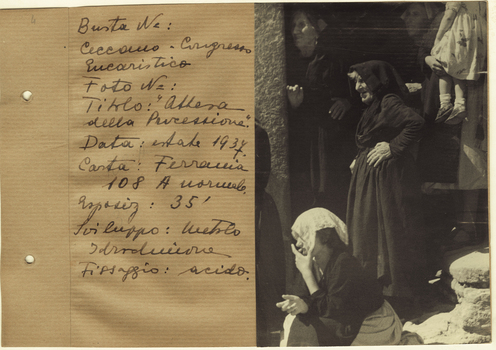 Busta No:
Ceccano - Congresso
Eucaristico
Foto No:
Titolo: "Attesa
della Processione".
Data: estate 1937
Carta: Ferrania
108 A normale.
Esposiz: 35'
Sviluppo: Metolo
Idrochinone
Fissaggio: acido.